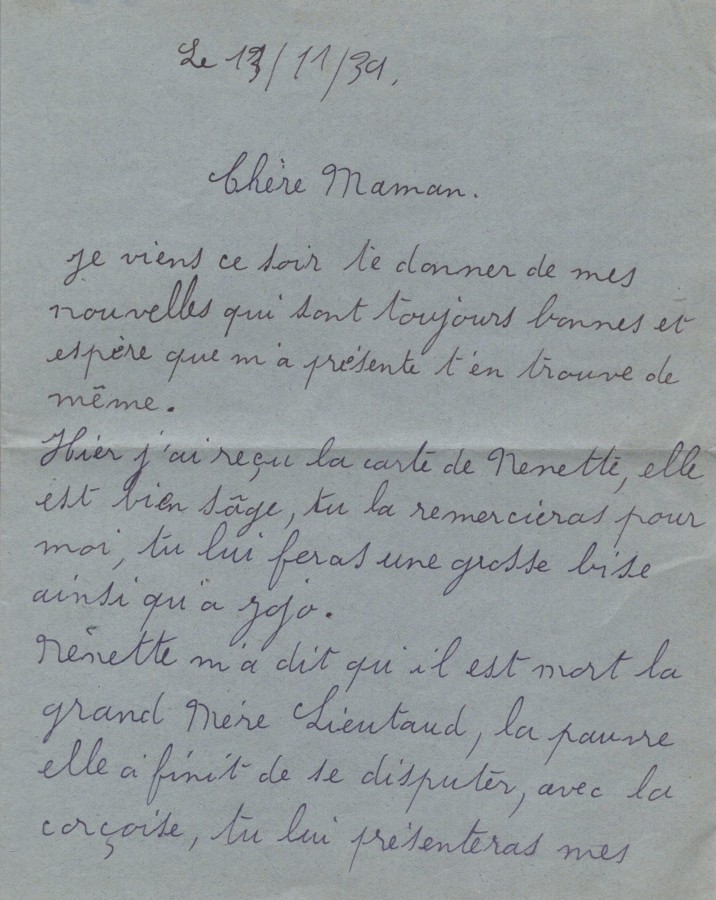 Le 13/11/39.
Chère Maman.
je viens ce soir te donner de mes
nouvelles qui sont toujours bonnes et
espère que m'a présente t'en trouve de
même.
Hier j'ai reçu la carte de Nenette, elle
est bien sâge, tu la remercieras pour
moi, tu lui feras une grosse bise
ainsi qu'a jojo.
Nénette m'a dit qu'il est mort la
grand Mére Lieutaud, la pauvre
elle a finit de se disputér, avec la
corçoise, tu lui présenteras mes